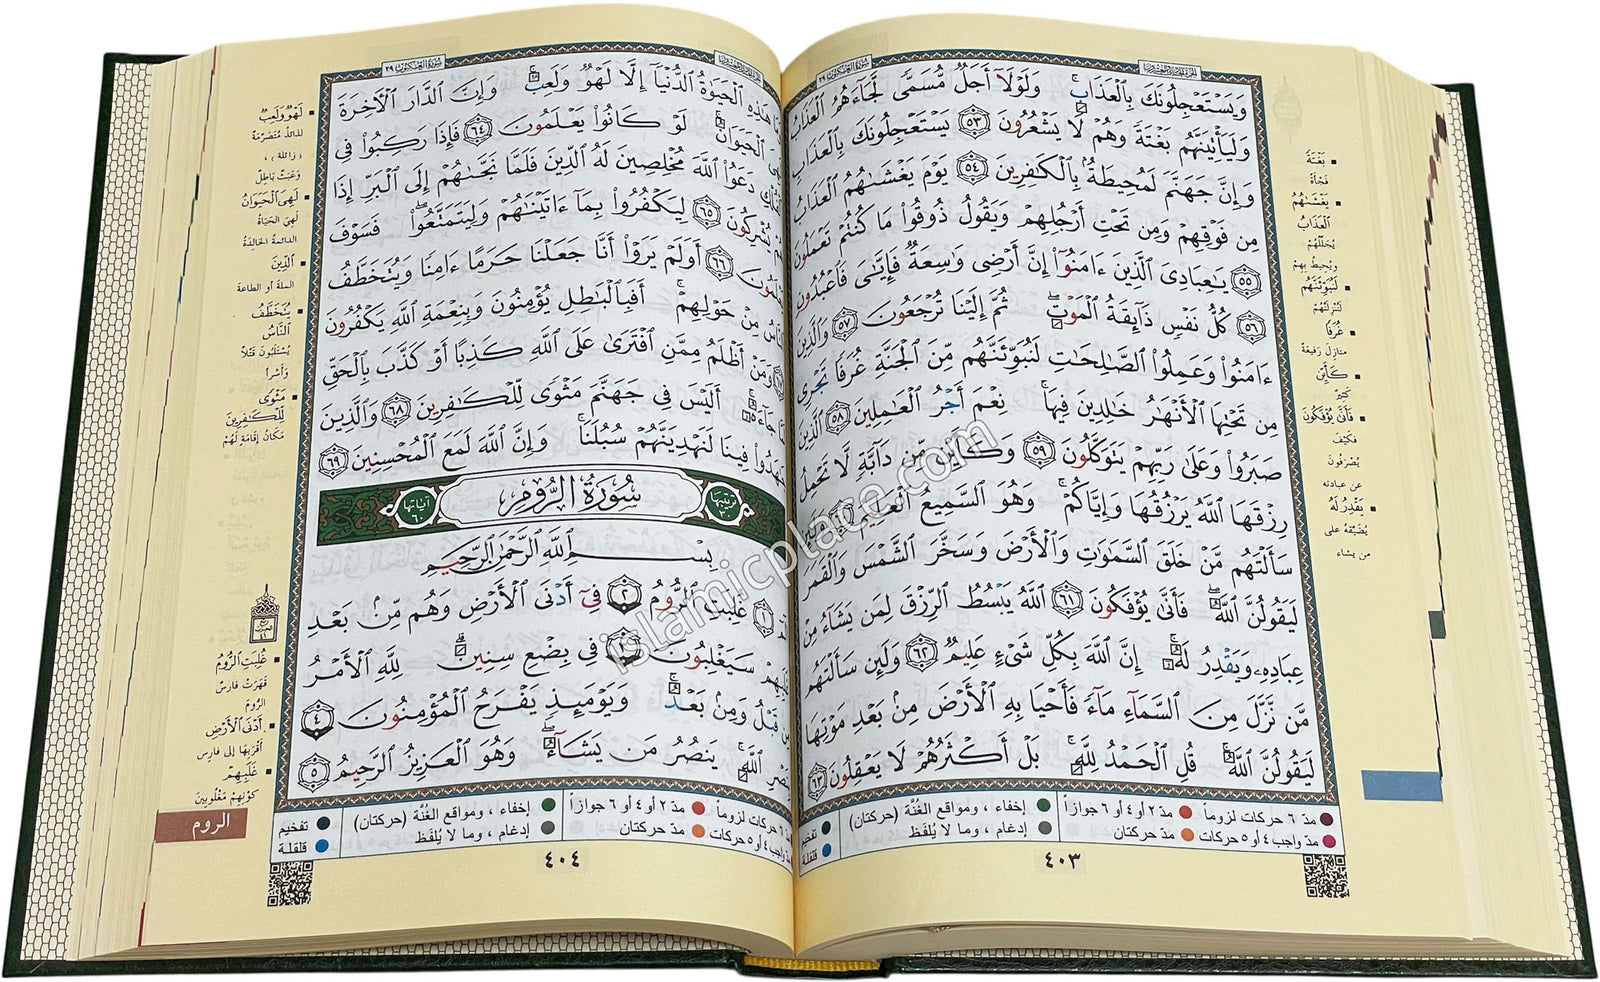 سورة العنكبوت ٢٩
وَيَسْتَعْجِلُونَكَ بِالْعَذَابِ ۚ وَلَوْلَآ أَجَلٌ مُّسَمًّى لَّجَآءَهُمُ الْعَذَابُ
وَلَيَأْتِيَنَّهُم بَغْتَةً وَهُمْ لَا يَشْعُرُونَ ٥٣ يَسْتَعْجِلُونَكَ بِالْعَذَابِ
وَإِنَّ جَهَنَّمَ لَمُحِيطَةٌۢ بِالْكَٰفِرِينَ ٥٤ يَوْمَ يَغْشَىٰهُمُ الْعَذَابُ
مِن فَوْقِهِمْ وَمِن تَحْتِ أَرْجُلِهِمْ وَيَقُولُ ذُوقُوا۟ مَا كُنتُمْ تَعْمَلُونَ
٥٥ يَٰعِبَادِىَ الَّذِينَ ءَامَنُوٓا۟ إِنَّ أَرْضِى وَٰسِعَةٌ فَإِيَّٰىَ فَاعْبُدُونِ
٥٦ كُلُّ نَفْسٍ ذَآئِقَةُ الْمَوْتِ ۖ ثُمَّ إِلَيْنَا تُرْجَعُونَ ٥٧ وَالَّذِينَ
ءَامَنُوا۟ وَعَمِلُوا۟ الصَّٰلِحَٰتِ لَنُبَوِّئَنَّهُم مِّنَ الْجَنَّةِ غُرَفًا تَجْرِى
مِن تَحْتِهَا الْأَنْهَٰرُ خَٰلِدِينَ فِيهَا ۚ نِعْمَ أَجْرُ الْعَٰمِلِينَ ٥٨ الَّذِينَ
صَبَرُوا۟ وَعَلَىٰ رَبِّهِمْ يَتَوَكَّلُونَ ٥٩ وَكَأَيِّن مِّن دَآبَّةٍ لَّا تَحْمِلُ
رِزْقَهَا اللَّهُ يَرْزُقُهَا وَإِيَّاكُمْ ۚ وَهُوَ السَّمِيعُ الْعَلِيمُ
سَأَلْتَهُم مَّنْ خَلَقَ السَّمَٰوَٰتِ وَالْأَرْضَ وَسَخَّرَ الشَّمْسَ وَالْقَمَرَ
لَيَقُولُنَّ اللَّهُ ۖ فَأَنَّىٰ يُؤْفَكُونَ ٦١ اللَّهُ يَبْسُطُ الرِّزْقَ لِمَن يَشَآءُ مِنْ
عِبَادِهِۦ وَيَقْدِرُ لَهُۥٓ ۚ إِنَّ اللَّهَ بِكُلِّ شَىْءٍ عَلِيمٌ ٦٢ وَلَئِن سَأَلْتَهُم
مَّن نَّزَّلَ مِنَ السَّمَآءِ مَآءً فَأَحْيَا بِهِ الْأَرْضَ مِنۢ بَعْدِ مَوْتِهَا
لَيَقُولُنَّ اللَّهُ ۚ قُلِ الْحَمْدُ لِلَّهِ ۚ بَلْ أَكْثَرُهُمْ لَا يَعْقِلُونَ ٦٣
بَغْتَةً
فَجْأَةً
يَغْشَىٰهُمُ
الْعَذَابُ
يُجَلِّلُهُمْ
ويُحِيطُ بهِم
لَنُبَوِّئَنَّهُم
لَنُنْزِلَنَّهُمْ
غُرَفًا
منازِلَ رَفِيعَةً
كَأَيِّن
كَثِيرٌ
فَأَنَّىٰ يُؤْفَكُونَ
فَكَيْفَ
يُصْرَفُونَ
عن عبادته
يَقْدِرُ لَهُ
يُضَيِّقهُ على
من يشاء
مدّ ٦ حركات لزوماً مدّ ٢ أو ٤ أو ٦ جوازاً إخفاء ، ومواقع الغُنَّة (حركتان) تفخيم
مدّ واجب ٤ أو ٥ حركات مدّ حركتان إدغام ، وما لا يُلفَظ قلقلة
٤٠٣
سورة العنكبوت ٢٩
هَٰذِهِ الْحَيَوٰةُ الدُّنْيَآ إِلَّا لَهْوٌ وَلَعِبٌ ۚ وَإِنَّ الدَّارَ الْءَاخِرَةَ
الْحَيَوَانُ ۚ لَوْ كَانُوا۟ يَعْلَمُونَ ٦٤ فَإِذَا رَكِبُوا۟ فِى
دَعَوُا۟ اللَّهَ مُخْلِصِينَ لَهُ الدِّينَ فَلَمَّا نَجَّىٰهُمْ إِلَى الْبَرِّ إِذَا
يُشْرِكُونَ ٦٥ لِيَكْفُرُوا۟ بِمَآ ءَاتَيْنَٰهُمْ وَلِيَتَمَتَّعُوا۟ ۖ فَسَوْفَ
٦٦ أَوَلَمْ يَرَوْا۟ أَنَّا جَعَلْنَا حَرَمًا ءَامِنًا وَيُتَخَطَّفُ
مِنْ حَوْلِهِمْ ۚ أَفَبِالْبَٰطِلِ يُؤْمِنُونَ وَبِنِعْمَةِ اللَّهِ يَكْفُرُونَ
وَمَنْ أَظْلَمُ مِمَّنِ افْتَرَىٰ عَلَى اللَّهِ كَذِبًا أَوْ كَذَّبَ بِالْحَقِّ
جَآءَهُۥٓ ۚ أَلَيْسَ فِى جَهَنَّمَ مَثْوًى لِّلْكَٰفِرِينَ ٦٨ وَالَّذِينَ
فِينَا لَنَهْدِيَنَّهُمْ سُبُلَنَا ۚ وَإِنَّ اللَّهَ لَمَعَ الْمُحْسِنِينَ ٦٩
ترتيبها ٣٠ سُورَةُ الرُّومِ آياتها ٦٠
بِسْمِ اللَّهِ الرَّحْمَٰنِ الرَّحِيمِ
١ غُلِبَتِ الرُّومُ ٢ فِىٓ أَدْنَى الْأَرْضِ وَهُم مِّنۢ بَعْدِ
سَيَغْلِبُونَ ٣ فِى بِضْعِ سِنِينَ ۗ لِلَّهِ الْأَمْرُ
قَبْلُ وَمِنۢ بَعْدُ ۚ وَيَوْمَئِذٍ يَفْرَحُ الْمُؤْمِنُونَ ٤
اللَّهِ ۚ يَنصُرُ مَن يَشَآءُ ۖ وَهُوَ الْعَزِيزُ الرَّحِيمُ ٥
لَهْوٌ وَلَعِبٌ
لذائذ مُتَصَرِّمَةٌ
(زائلة) ،
وَعَبَثٌ بَاطِلٌ
لَهِىَ الْحَيَوَانُ
لَهِيَ الحَيَاةُ
الدائمةُ الخالدةُ
الدِّينَ
الملة أو الطاعة
يُتَخَطَّفُ
النَّاسُ
يُسْتَلَبُونَ قَتْلاً
وَأَسْراً
مَثْوًى
لِّلْكَٰفِرِينَ
مَكَانُ إقَامَةٍ لَهُمْ
غُلِبَتِ الرُّومُ
قَهَرَتْ فارسُ
الرُّومَ
أَدْنَى الْأَرْضِ
أَقْرَبِهَا إلى فارس
غَلَبِهِمْ
كَوْنِهِمْ مَغْلُوبِينَ
الروم
حركات لزوماً مدّ ٢ أو ٤ أو ٦ جوازاً إخفاء ، ومواقع الغُنَّة (حركتان) تفخيم
واجب ٤ أو ٥ حركات مدّ حركتان إدغام ، وما لا يُلفَظ قلقلة
٤٠٤
islamicplace.com